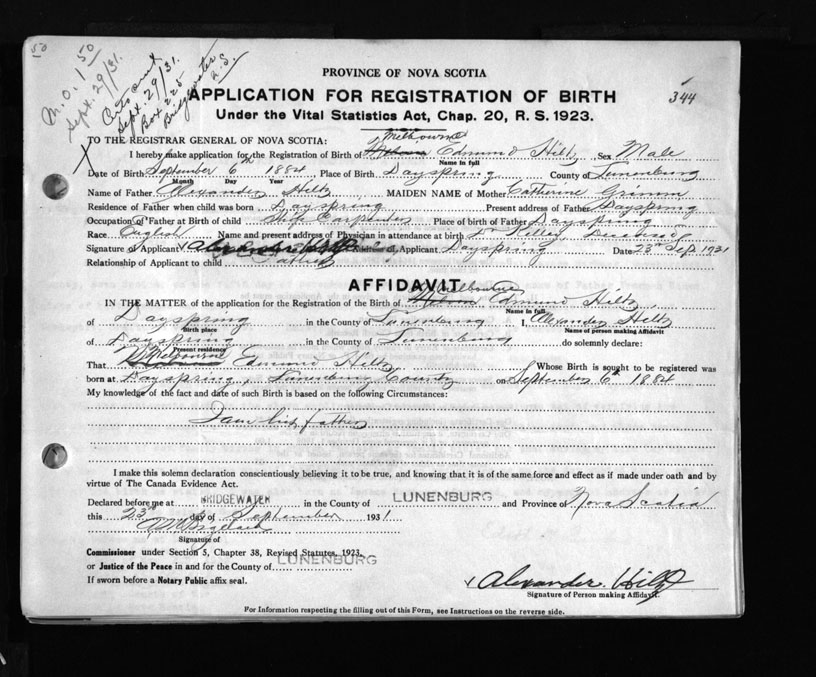 50
M.O. 1.50
Sept. 29/31.
Sept. 29/31.
Box 225
Bridgewater
N.S.
PROVINCE OF NOVA SCOTIA
344
APPLICATION FOR REGISTRATION OF BIRTH
Under the Vital Statistics Act, Chap. 20, R. S. 1923.
TO THE REGISTRAR GENERAL OF NOVA SCOTIA:
Melbourne
I hereby make application for the Registration of Birth of Edmund Hiltz Sex Male
Name in full
Date of Birth September 6 1884 Place of Birth Dayspring County of Lunenburg
Month Day Year
Name of Father Alexander Hiltz MAIDEN NAME of Mother Catherine Grimm
Residence of Father when child was born Dayspring Present address of Father Dayspring
Occupation of Father at Birth of child Ship Carpenter Place of birth of Father Dayspring
Race English Name and present address of Physician in attendance at birth Dr Kelley, Deceased
Signature of Applicant Alexander Hiltz Address of Applicant Dayspring Date 23rd Sep 1931
Relationship of Applicant to child Father
AFFIDAVIT
Melbourne
IN THE MATTER of the application for the Registration of the Birth of Edmund Hiltz
Name in full
of Dayspring in the County of Lunenburg I, Alexander Hiltz
Birth place Name of person making Affidavit
of Dayspring in the County of Lunenburg do solemnly declare:
Present residence
That Melbourne Edmund Hiltz Whose Birth is sought to be registered was
born at Dayspring, Lunenburg County on September 6th 1884
My knowledge of the fact and date of such Birth is based on the following Circumstances:
I am his father
I make this solemn declaration conscientiously believing it to be true, and knowing that it is of the same force and effect as if made under oath and by
virtue of The Canada Evidence Act.
Declared before me at BRIDGEWATER in the County of LUNENBURG and Province of Nova Scotia
this 23rd day of September 1931
Signature of
Commissioner under Section 5, Chapter 38, Revised Statutes, 1923,
or Justice of the Peace in and for the County of LUNENBURG
If sworn before a Notary Public affix seal.
Alexander Hiltz
Signature of Person making Affidavit.
For Information respecting the filling out of this Form, see Instructions on the reverse side.